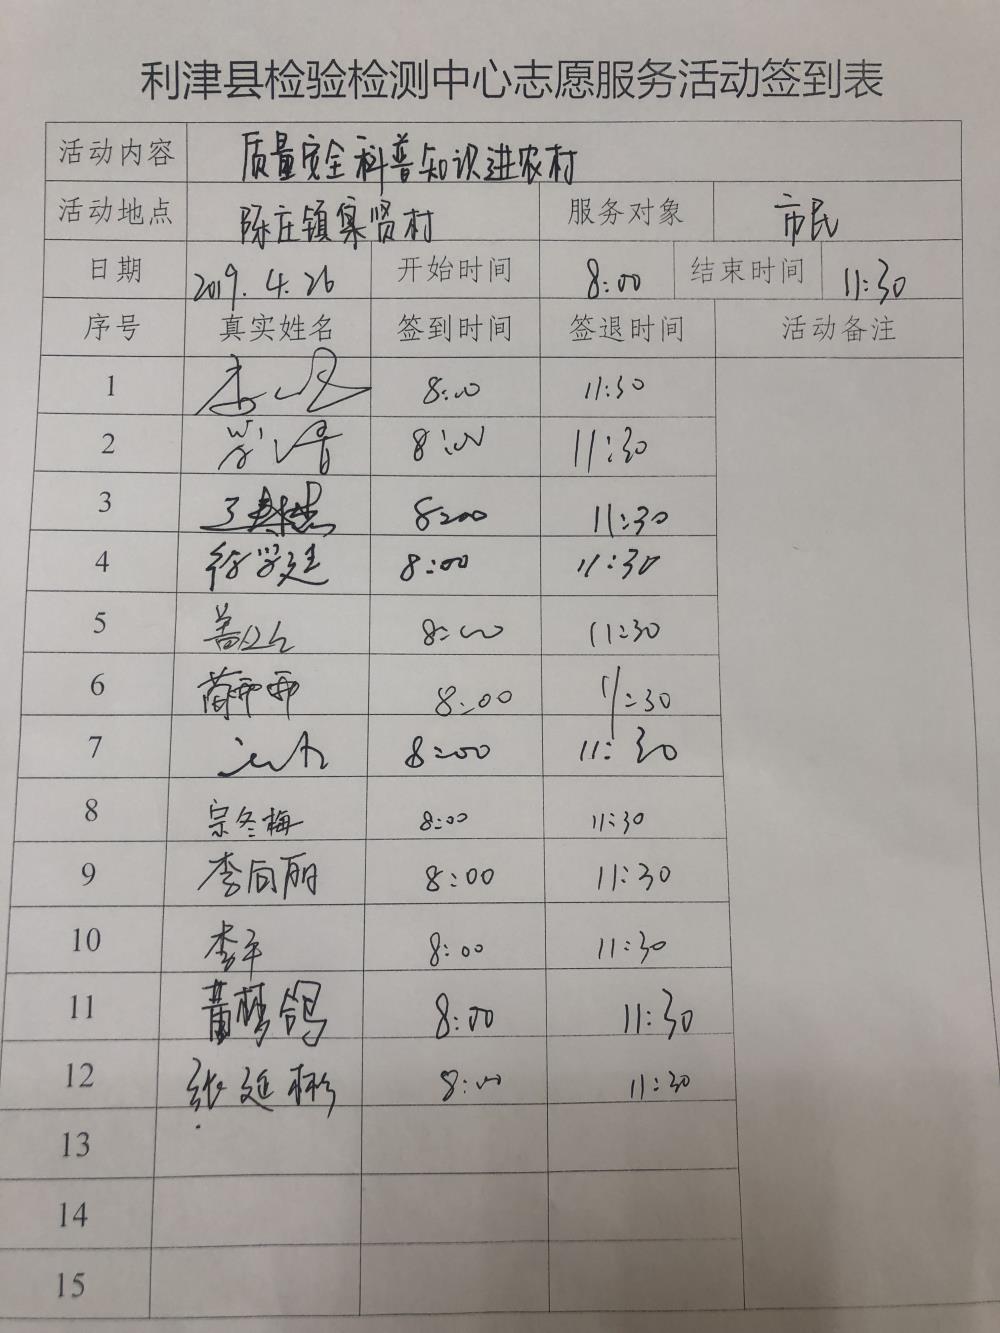 利津县检验检测中心志愿服务活动签到表
活动内容 质量安全科普知识进农村
活动地点 陈庄镇集贤村 服务对象 市民
日期 2019.4.26 开始时间 8:00 结束时间 11:30
序号 真实姓名 签到时间 签退时间 活动备注
1 8:00 11:30
2 8:00 11:30
3 8:00 11:30
4 徐学廷 8:00 11:30
5 8:00 11:30
6 8:00 11:30
7 8:00 11:30
8 宗冬梅 8:00 11:30
9 李向丽 8:00 11:30
10 李平 8:00 11:30
11 黄梦鸽 8:00 11:30
12 张延彬 8:00 11:30
13
14
15